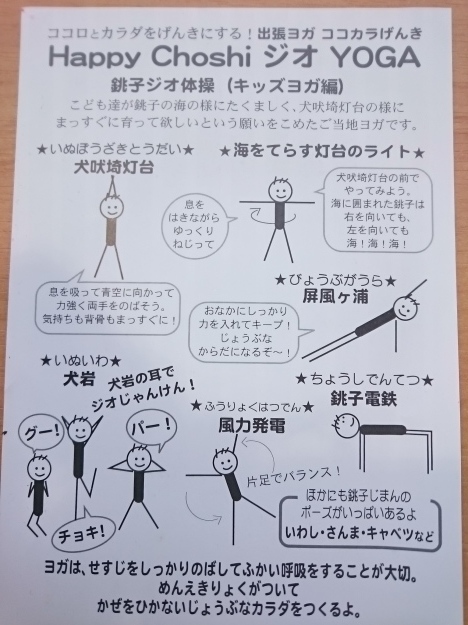 ココロとカラダをげんきにする！出張ヨガ ココカラげんき
Happy Choshi ジオ YOGA
銚子ジオ体操（キッズヨガ編）
こども達が銚子の海の様にたくましく、犬吠埼灯台の様に
まっすぐに育って欲しいという願いをこめたご当地ヨガです。
★いぬぼうざきとうだい★
犬吠埼灯台
息を吸って青空に向かって
力強く両手をのばそう。
気持ちも背骨もまっすぐに！
★海をてらす灯台のライト★
息を
はきながら
ゆっくり
ねじって
犬吠埼灯台の前で
やってみよう。
海に囲まれた銚子は
右を向いても、
左を向いても
海！海！海！
★びょうぶがうら★
屏風ヶ浦
おなかにしっかり
力を入れてキープ！
じょうぶな
からだになるぞ〜！
★いぬいわ★
犬岩
犬岩の耳で
ジオじゃんけん！
グー！
チョキ！
パー！
★ふうりょくはつでん★
風力発電
片足でバランス！
★ちょうしでんてつ★
銚子電鉄
ほかにも銚子じまんの
ポーズがいっぱいあるよ
いわし・さんま・キャベツなど
ヨガは、せすじをしっかりのばしてふかい呼吸をすることが大切。
めんえきりょくがついて
かぜをひかないじょうぶなカラダをつくるよ。